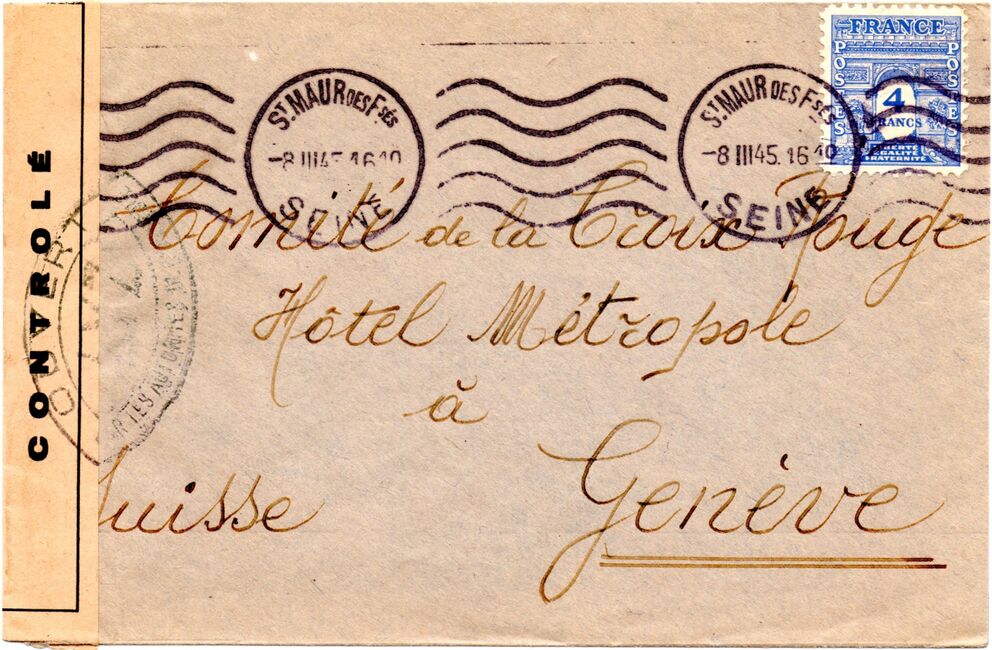 FRANCE
POSTES
POSTES
4
FRANCS
LIBERTÉ
ÉGALITÉ
FRATERNITÉ
ST MAUR DES FSÉS
-8 III 45
SEINE
ST MAUR DES FSÉS
-8 III 45. 16 10
SEINE
CONTROLÉ
OUVERT
LES AUTORITÉS
Comité de la Croix Rouge
Hôtel Métropole
à
Genève
Suisse